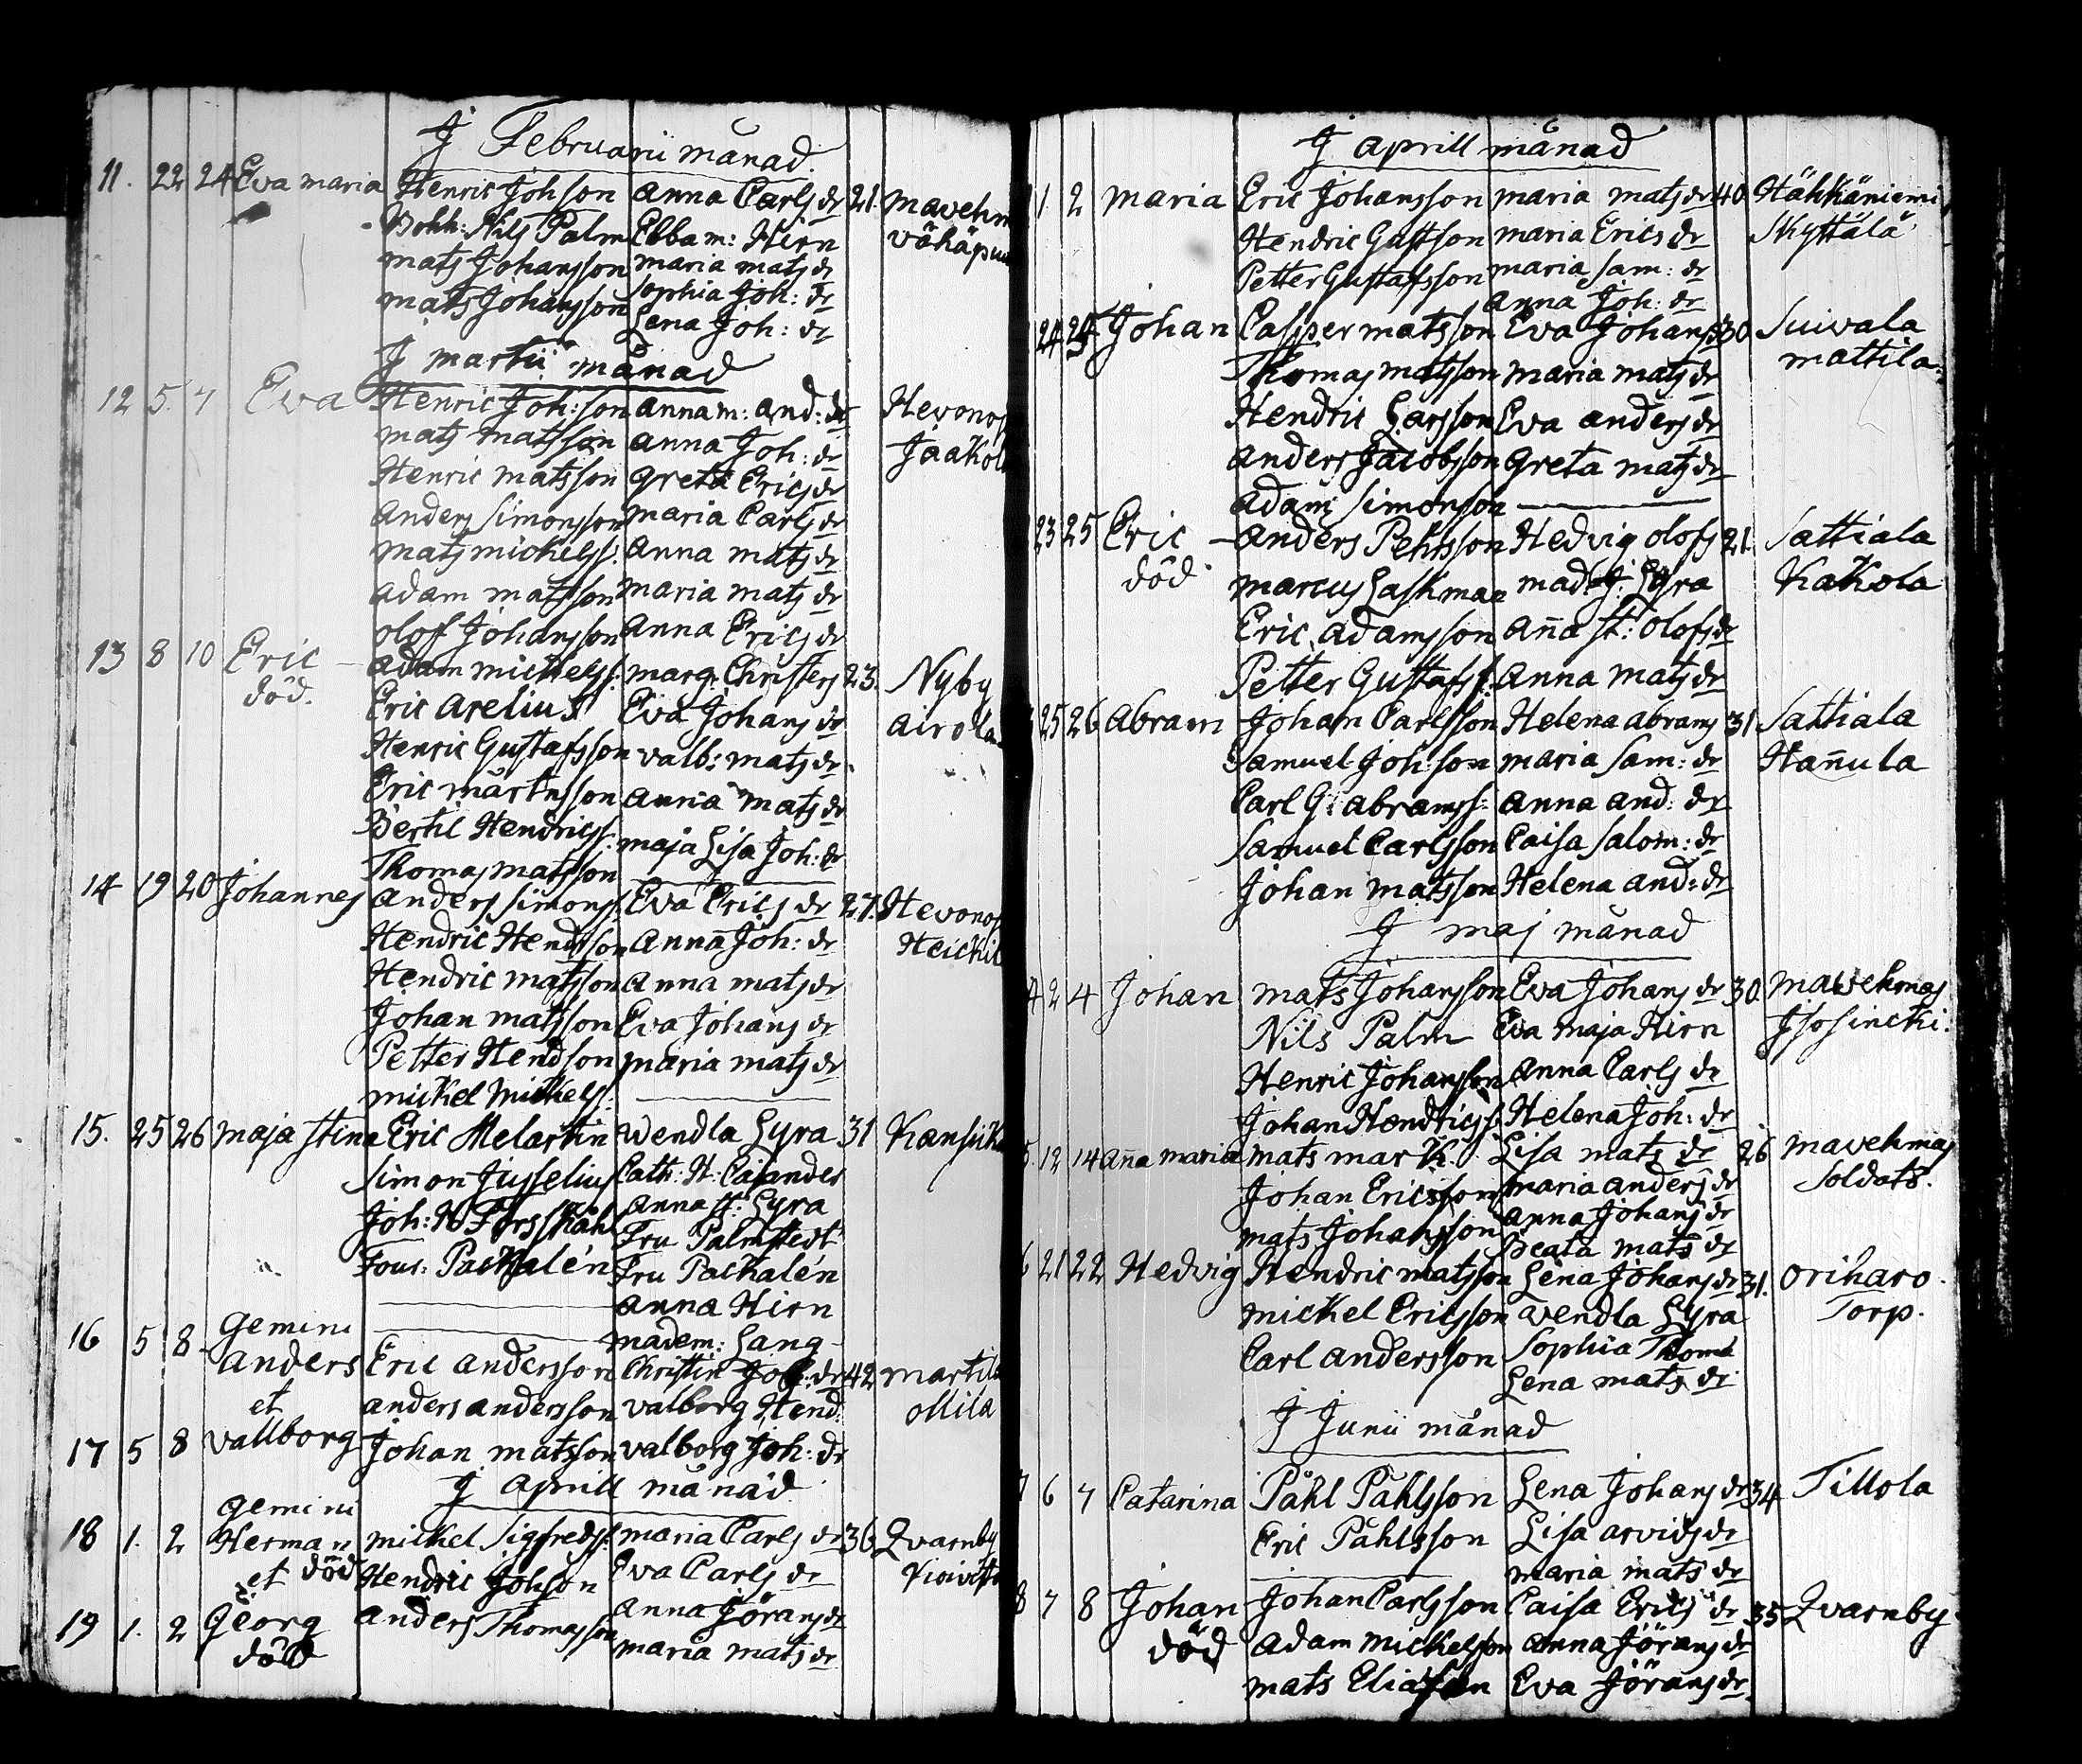 J Februarii månad.
11. 22 24 Eva maria Henric Johsson Anna Carls dr 21. mavehm
Bohh: Nils Palm Ebba m: Hirn vähäpu
mats Johansson maria mats dr
mats Johansson Sophia Joh: dr
Lena Joh: dr
J martii månad
12 5. 7 Eva Henric Joh:son anna m: and: dr Hevonos
mats matsson anna Joh: dr Jaakol
Henric matsson greta Erics dr
Anders Simonsson maria Carls dr
mats mickelss: Anna mats dr
Adam matsson maria mats dr
olof Johansson Anna Erics dr
13 8 10 Eric adam mickelss: marg: Christers 23. Nyby
död. Eric Arelius Eva Johans dr airola
Henric Gustafsson valb: mats dr
Eric mårtnsson anna mats dr
Bertil Hendricss: maja Lisa Joh: dr
Thomas matsson
14 19 20 Johannes anders Simonss: Eva Erics dr 27. Hevonos
Hendric Hendsson Anna Joh: dr Heickil
Hendric matsson Anna mats dr
Johan matsson Eva Johans dr
Petter Hendson maria mats dr
mickel Mickels:
15. 25 26 maja Stina Eric Melartin wendla Lyra 31 Kansik
Simon Jusselius Cath: H: Cajander
Joh: H Forsskåhl Anna St: Lyra
Fru Palmstedt
Paskalén Fru Paskalén
Anna Hirn
16 5 8 gemini madem: Lang
Anders Eric andersson Christin Joh: dr 42 martila
et anders andersson valborg Hend: ollila
17 5 8 vallborg Johan matsson valborg Joh: dr
J aprill månad.
gemini
18 1. 2 Herman mickel Sigfredss: maria Carls dr 36 Qvarnby
et död Hendric Johson Eva Carls dr
19 1. 2 Georg anders Thomasson anna Jörans dr
död maria mats dr
J aprill månad
1 2 maria Eric Johansson maria mats dr 40. Hähkäniemi
Hendric Gustson maria Erics dr Skyttälä
Petter Gustafsson maria Sam: dr
anna Joh: dr
24 25 Johan Casper matsson Eva Johans 30. Suivala
Thomas matsson maria mats dr mattila
Hendric Larsson Eva anders dr
anders Jacobsson greta mats dr
adam Simonson
23 25 Eric anders Pehrsson Hedvig olofs 21. Sattiala
död marcus Laskman mad: J: Lyra Kakola
Eric adamsson aña St: olofs dr
Petter Gustafss: Anna mats dr
25 26 abram Johan Carlsson Helena abrams 31 Sattiala
Samuel Johsson maria Sam: dr Hañula
Carl G: abramss: anna and: dr
Samuel Carlsson Caisa Salom: dr
Johan matsson Helena and: dr
J maj månad
2 4 Johan mats Johansson Eva Johans dr 30. mavehmas
Nils Palm Eva maja Hirn
Henric Johansson Anna Carls dr
Johan Hendricss: Helena Joh: dr
12 14 aña maria mats mark Lisa mats dr 26 mavehmas
Johan Ericsson maria anders dr Soldats.
mats Johansson anna Johans dr
Beata mats dr
21 22 Hedvig Hendric matsson Lena Johans dr 31. oriharo
mickel Ericsson wendla Lyra Torp.
Carl andersson Sophia Thomæ
Lena mats dr
J Junii månad
6 7 Catarina Påhl Påhlsson Lena Johans dr 34 Tillola
Eric Påhlsson Lisa arvids dr
maria mats dr
8 7 8 Johan Johan Carlsson Caisa Erics dr 35 Qvarnby
död adam mickelsson anna Jörans dr
mats Eliasson Eva Jörans dr.